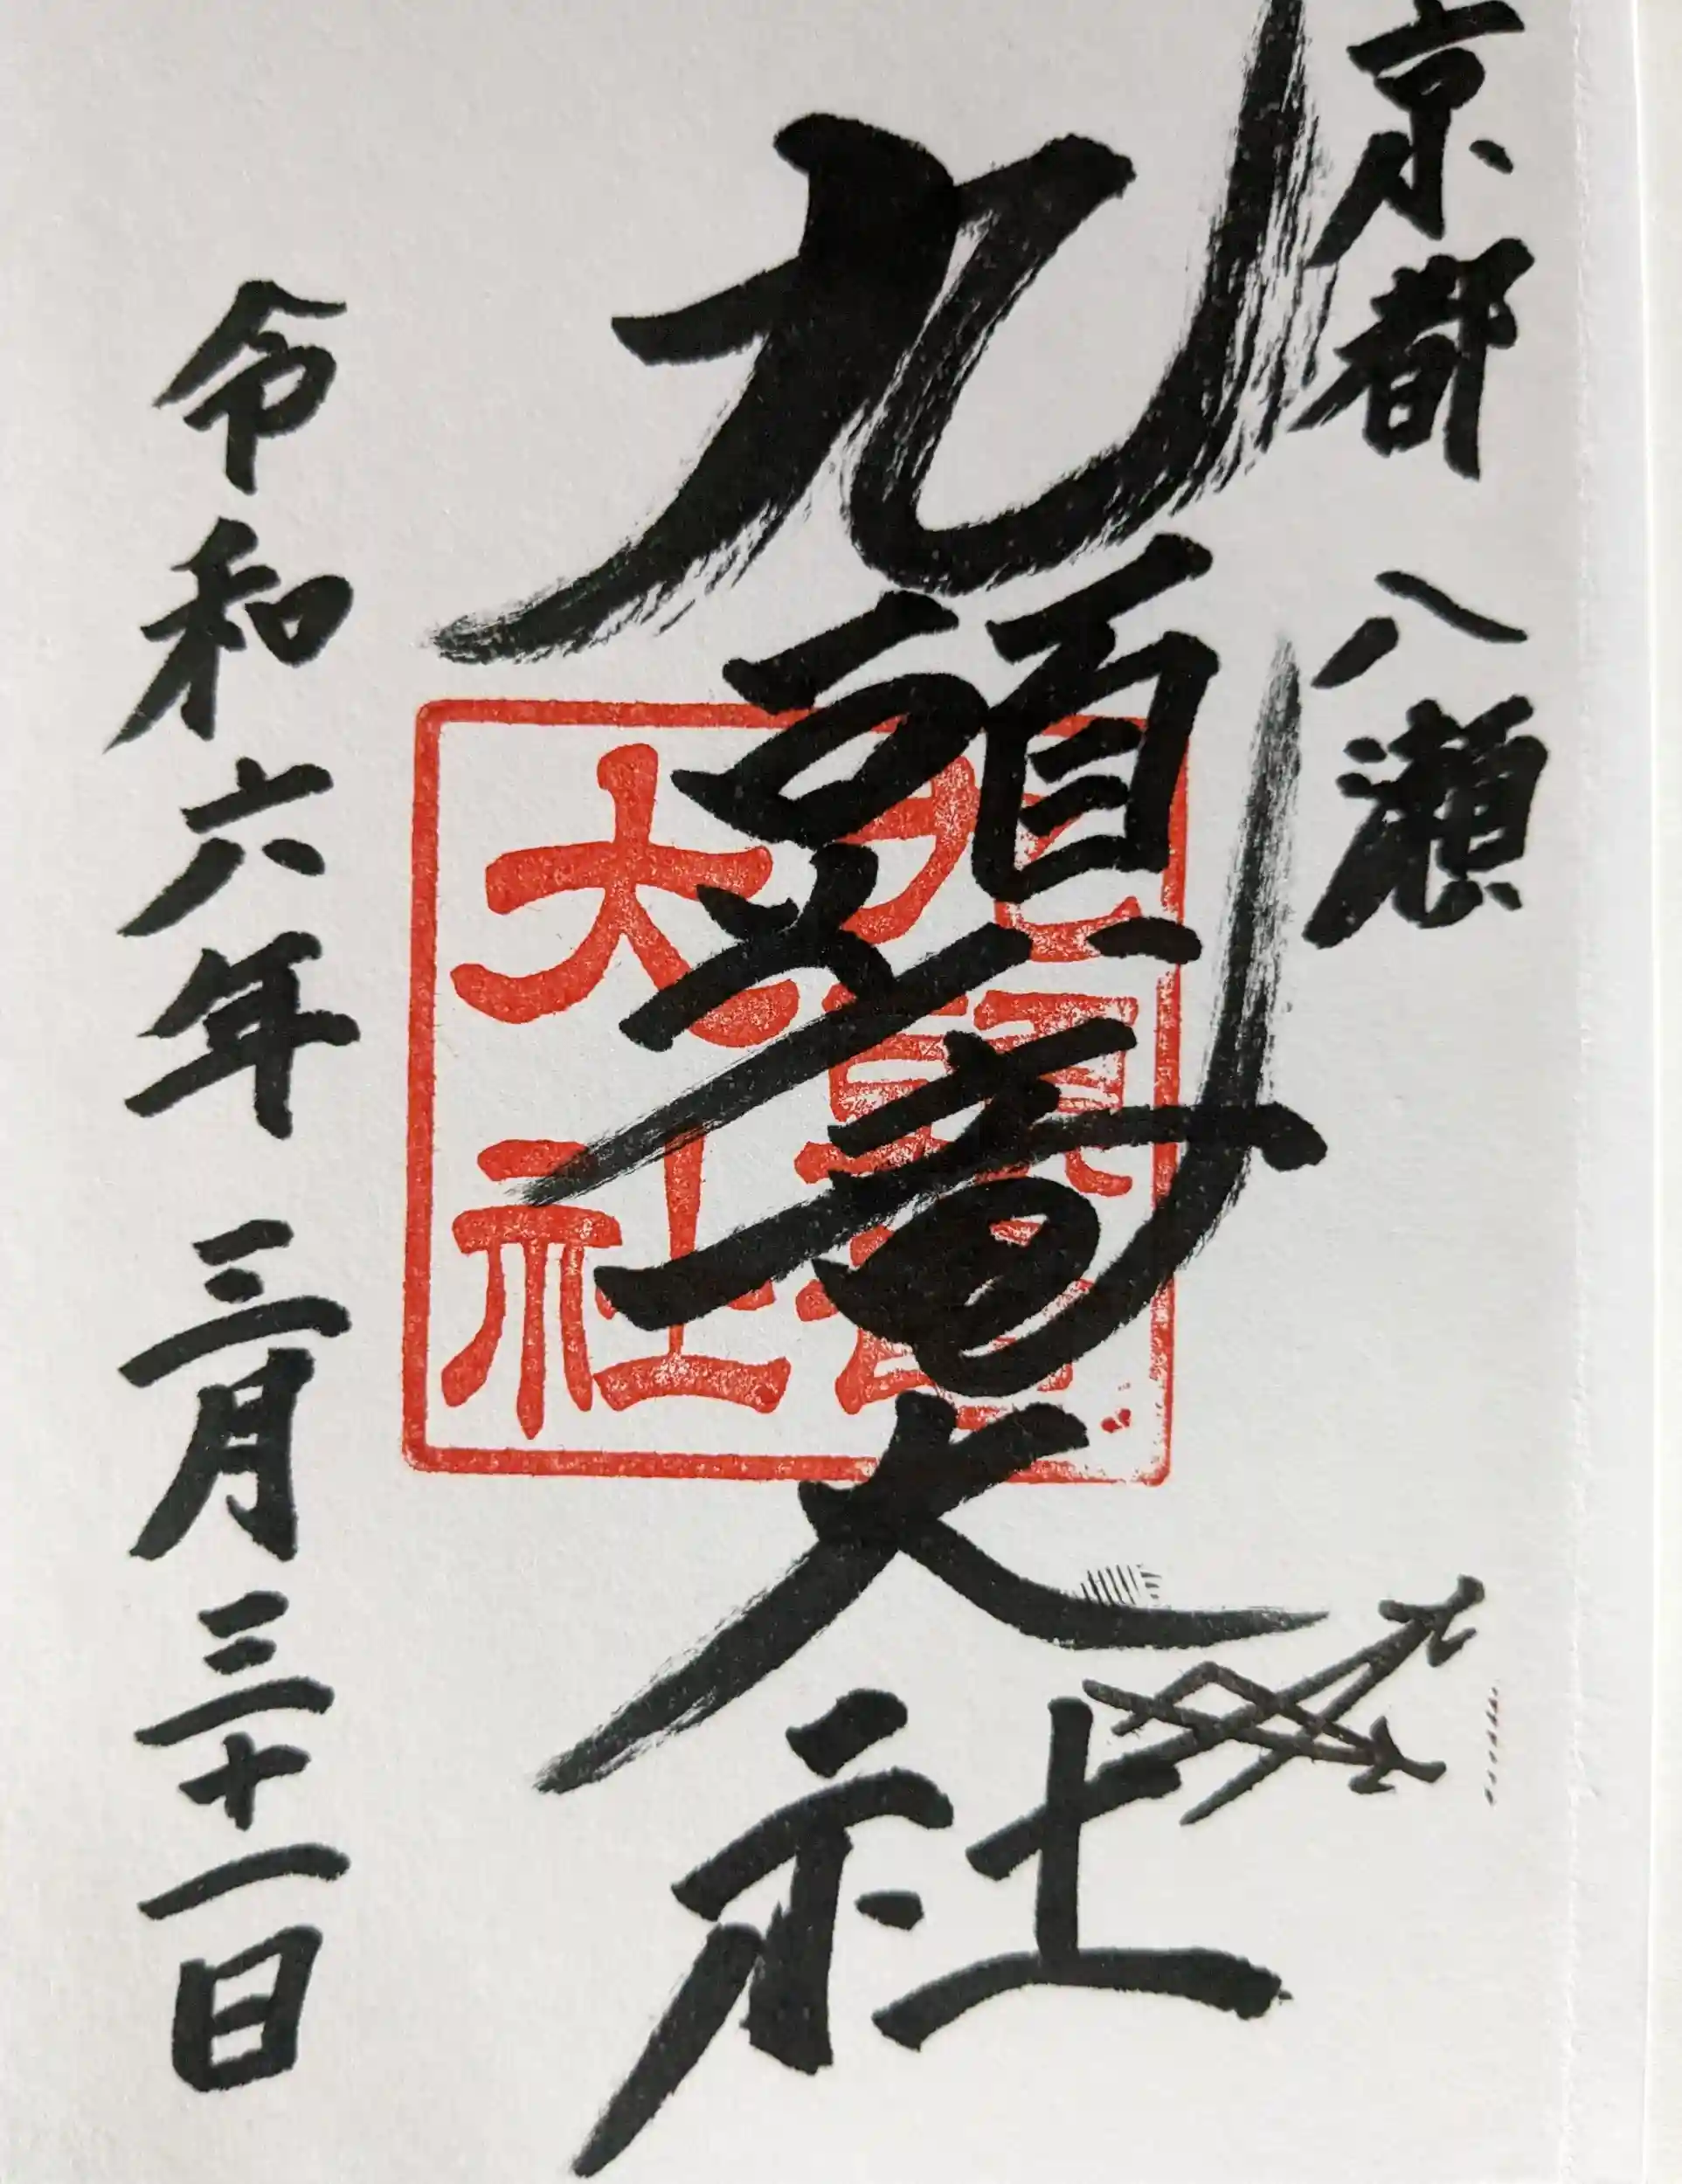 京都 八瀬
九頭竜大社
令和六年 三月三十一日
九頭竜
大社